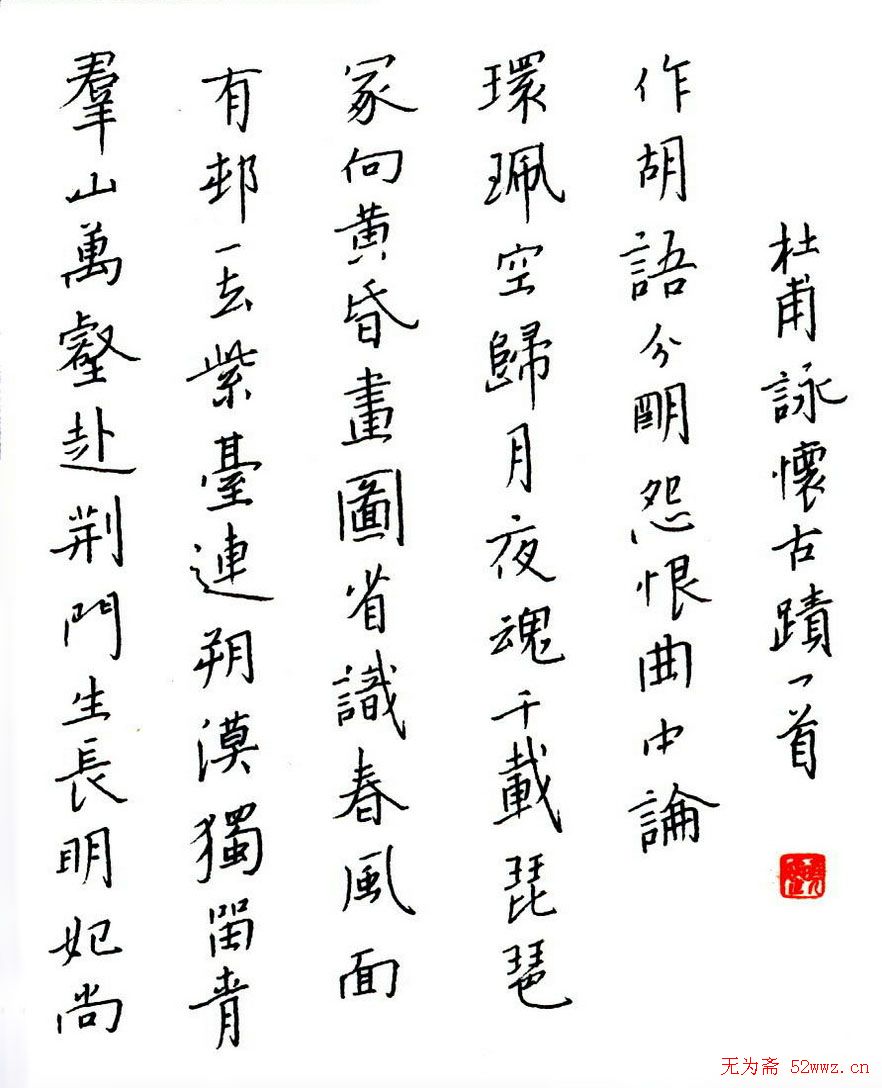 羣山萬壑赴荊門生長明妃尚
有邨一去紫臺連朔漠獨畱青
冢向黄昏畫圖省識春風面
環珮空歸月夜魂千載琵琶
作胡語分朙怨恨曲中論
杜甫詠懷古蹟一首
无为斋 52wwz.cn